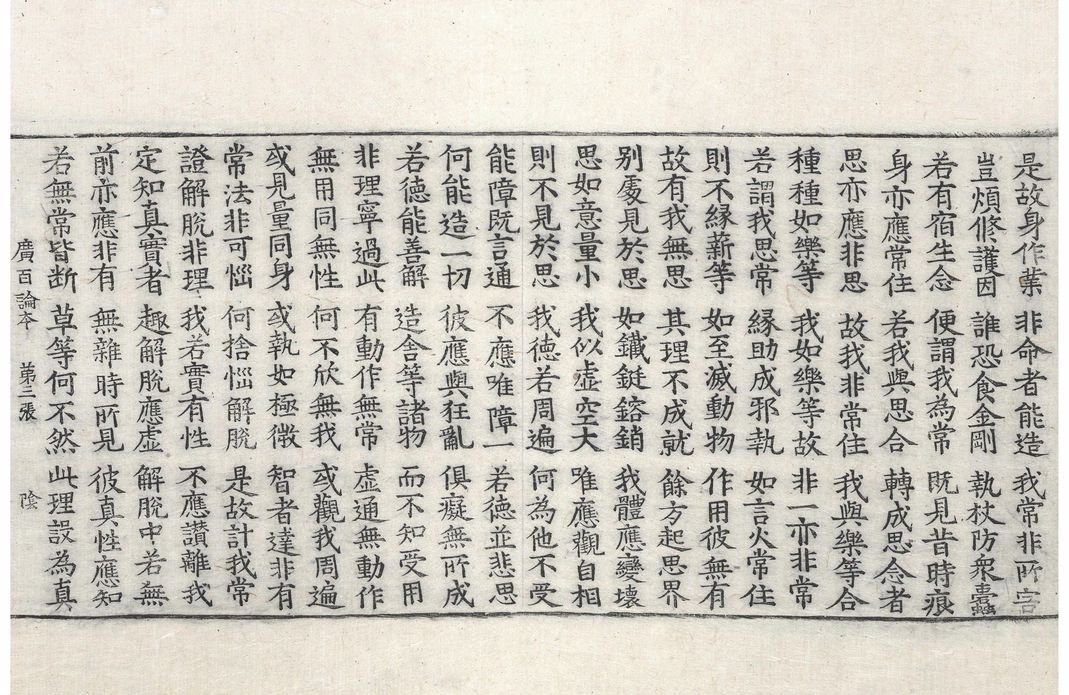 是故身作業 非命者能造 我常非所害
豈煩修護因 誰恐食金剛 執杖防衆蠹
若有宿生念 便謂我為常 既見昔時痕
身亦應常住 若我與思合 轉成思念者
思亦應非思 故我非常住 我與樂等合
種種如樂等 我如樂等故 非一亦非常
若謂我思常 緣助成邪執 如言火常住
則不緣薪等 如至滅動物 作用彼無有
故有我無思 其理不成就 餘方起思界
別處見於思 如鐵鋌鎔銷 我體應變壞
思如意量小 我似虛空大 唯應觀自相
則不見於思 我德若周遍 何為他不受
能障既言通 不應唯障一 若德並悲思
何能造一切 彼應與狂亂 俱癡無所成
若德能善解 造舍等諸物 而不知受用
非理寧過此 有動作無常 虛通無動作
無用同無性 何不欣無我 或觀我周遍
或見量同身 或執如極微 智者達非有
常法非可惱 何捨惱解脫 是故計我常
證解脫非理 我若實有性 不應讚離我
定知真實者 趣解脫應虛 解脫中若無
前亦應非有 無雜時所見 彼真性應知
若無常皆断 草等何不然 此理設為真
廣百論本 第三張 陰